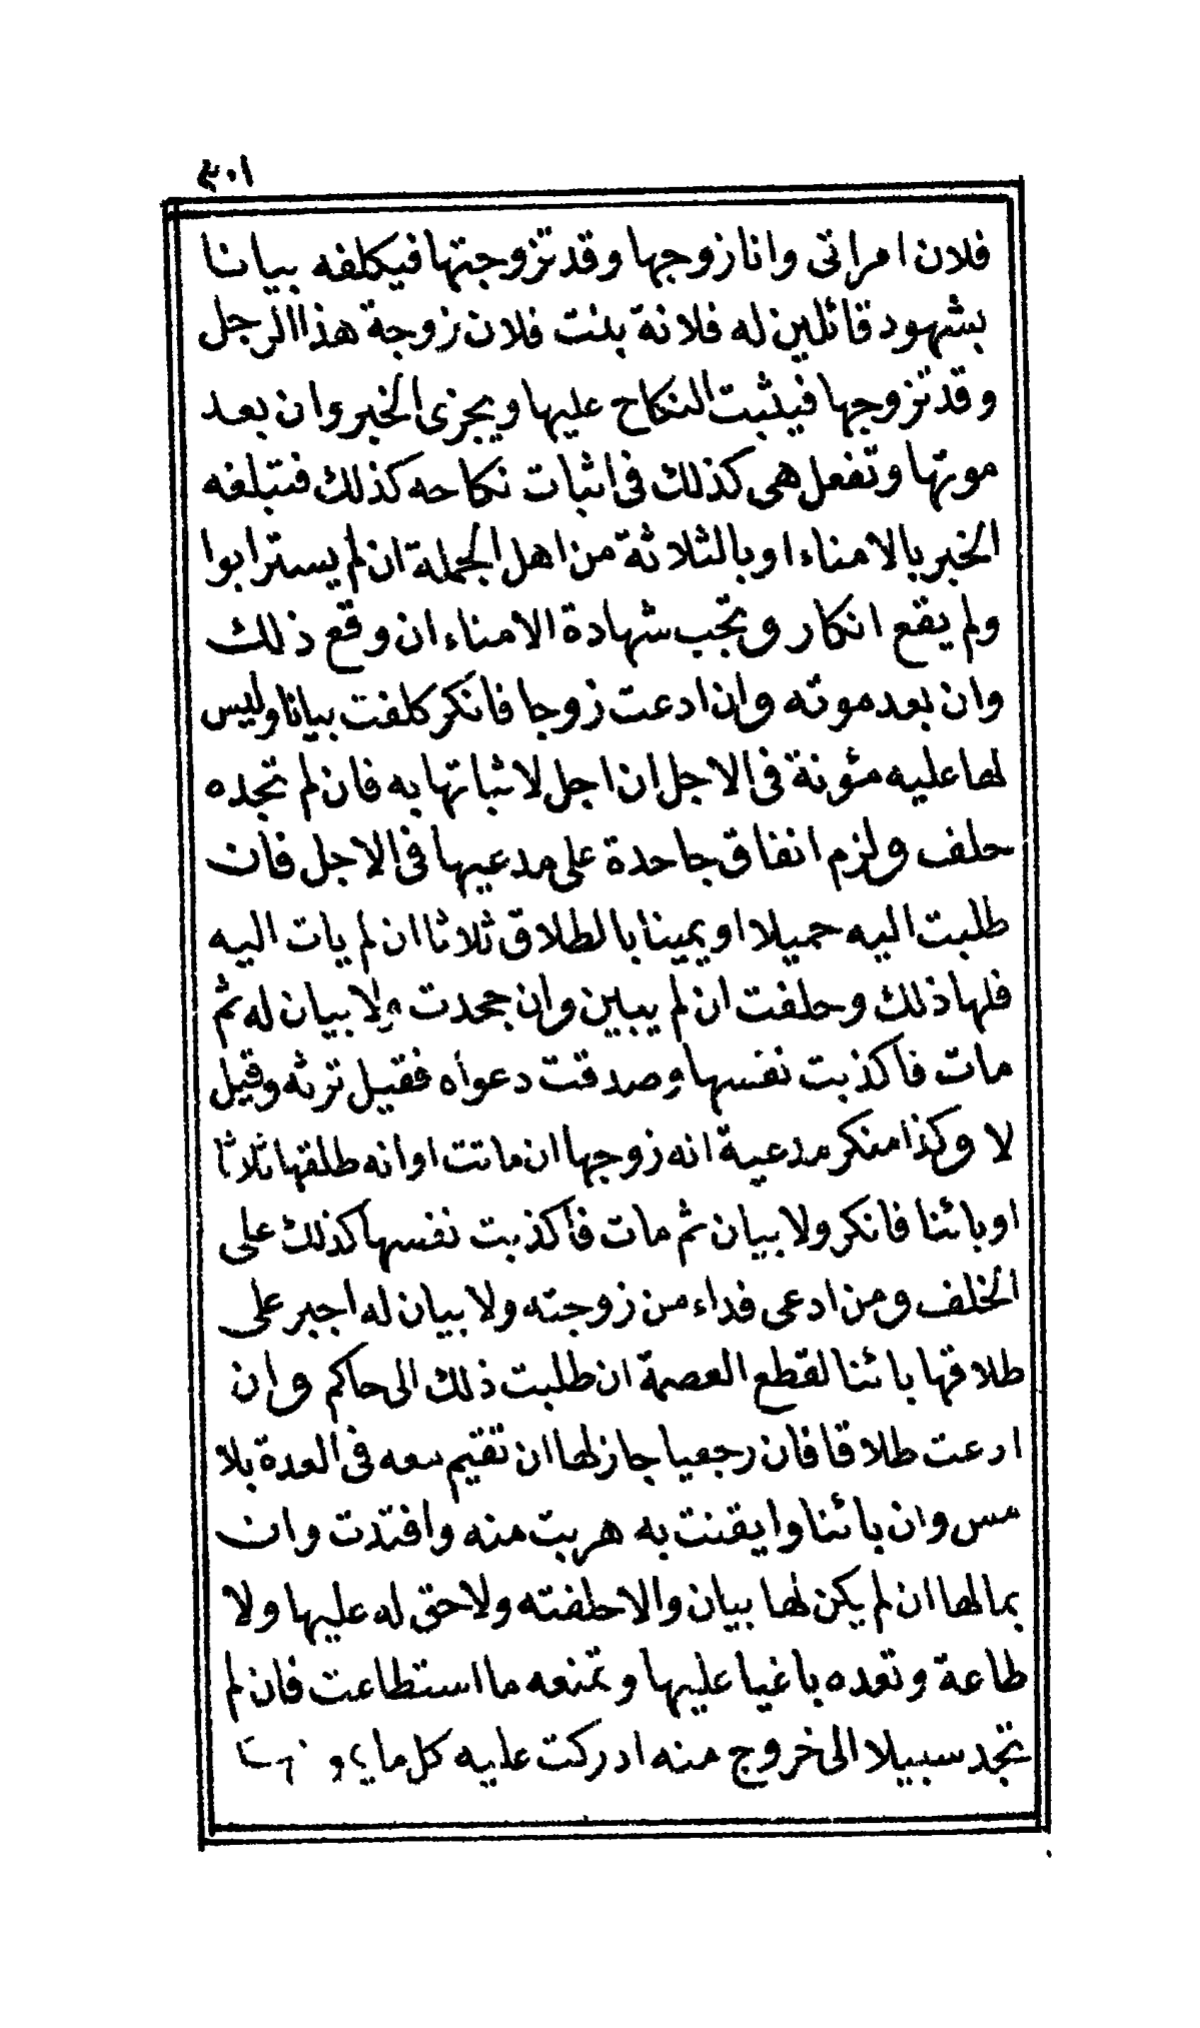 ٣٠١
فلان امراتى وانا زوجها وقد تزوجتها فيكلفه بيانا
بشهود قائلين له فلانة بنت فلان زوجة هذا الرجل
وقد تزوجها فيثبت النكاح عليها ويجزى الخبر وان بعد
موتها وتفعل هى كذلك فى اثبات نكاحه كذلك فتبلغه
الخبر بالامناء او بالثلاثة من اهل الجملة ان لم يسترابوا
ولم يقع انكار وتجب شهادة الامناء ان وقع ذلك
وان بعد موته وان ادعت زوجا فانكر كلفت بيانا وليس
لها عليه مئونة فى الاجل ان اجل لاثباتها به فان لم تجده
حلف ولزم انفاق جاحدة على مدعيها فى الاجل فان
طلبت اليه حميلا او يمينا بالطلاق ثلاثا ان لم يات اليه
فلها ذلك وحلفت ان لم يبين وان جحدت ولا بيان له ثم
مات فاكذبت نفسها وصدقت دعواه فقيل ترثه وقيل
لا وكذا منكر مدعية انه زوجها ان ماتت او انه طلقها ثلاثا
او بائنا فانكر ولا بيان ثم مات فأكذبت نفسها كذلك على
الخلف ومن ادعى فداء من زوجته ولا بيان له اجبر على
طلاقها بائنا لقطع العصمة ان طلبت ذلك الى حاكم وان
ادعت طلاقا فان رجعيا جاز لها ان تقيم معه فى العدة بلا
مس وان بائنا وايقنت به هربت منه وافتدت وان
بمالها ان لم يكن لها بيان والا حلفته ولا حق له عليها ولا
طاعة وتعده باغيا عليها وتمنعه ما استطاعت فان لم
تجد سبيلا الى خروج منه ادركت عليه كل ما